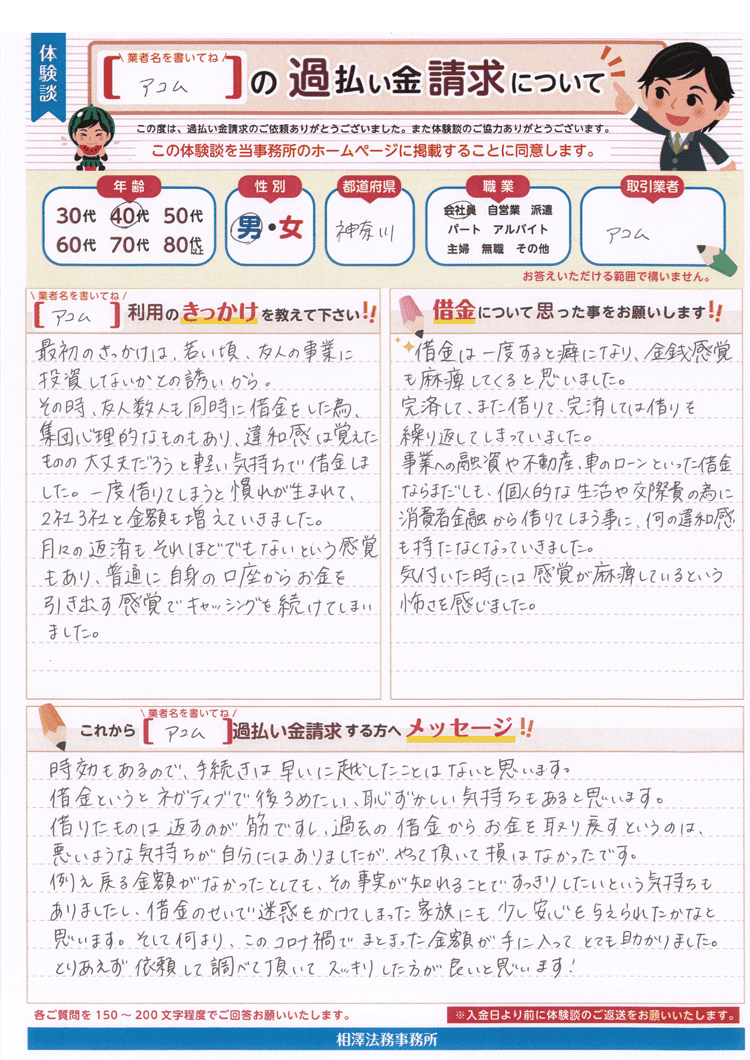 体験談
\ 業者名を書いてね /
[アコム]の過払い金請求について
この度は、過払い金請求のご依頼ありがとうございました。また体験談のご協力ありがとうございます。
この体験談を当事務所のホームページに掲載することに同意します。
年齢
30代 40代 50代
60代 70代 80代以上
性別
男・女
都道府県
神奈川
職業
会社員 自営業 派遣
パート アルバイト
主婦 無職 その他
取引業者
アコム
お答えいただける範囲で構いません。
\ 業者名を書いてね /
[アコム]利用のきっかけを教えて下さい!!
最初のきっかけは、若い頃、友人の事業に
投資しないかとの誘いから。
その時、友人数人も同時に借金をした為、
集団心理的なものもあり、違和感は覚えた
ものの大丈夫だろうと軽い気持ちで借金しま
した。一度借りてしまうと慣れが生まれて、
2社3社と金額も増えていきました。
月々の返済もそれほどでもないという感覚
もあり、普通に自身の口座からお金を
引き出す感覚でキャッシングを続けてしまい
ました。
借金について思った事をお願いします!!
借金は一度すると癖になり、金銭感覚
も麻痺してくると思いました。
完済して、また借りて、完済しては借りを
繰り返してしまっていました。
事業への融資や不動産、車のローンといった借金
ならまだしも、個人的な生活や交際費の為に
消費者金融から借りてしまう事に、何の違和感
も持たなくなっていきました。
気付いた時には感覚が麻痺しているという
怖さを感じました。
\ 業者名を書いてね /
これから[アコム]過払い金請求する方へメッセージ!!
時効もあるので、手続きは早いに越したことはないと思います。
借金というとネガティブで後ろめたい、恥ずかしい気持ちもあると思います。
借りたものは返すのが筋ですし、過去の借金からお金を取り戻すというのは、
悪いような気持ちが自分にはありましたが、やって頂いて損はなかったです。
例え戻る金額がなかったとしても、その事実が知れることですっきりしたいという気持ちも
ありましたし、借金のせいで迷惑をかけてしまった家族にも少し安心を与えられたかなと
思います。そして何より、このコロナ禍でまとまった金額が手に入ってとても助かりました。
とりあえず依頼して調べて頂いてスッキリした方が良いと思います!
各ご質問を150~200文字程度でご回答お願いいたします。
※入金日より前に体験談のご返送をお願いいたします。
相澤法務事務所